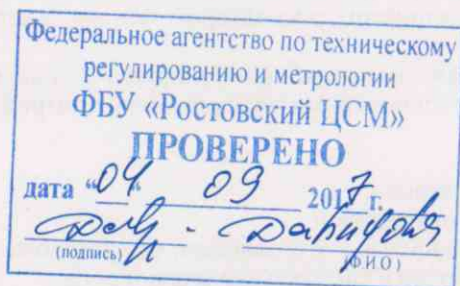 Федеральное агентство по техническому
регулированию и метрологии
ФБУ «Ростовский ЦСМ»
ПРОВЕРЕНО
дата “04“ 09 2017 г.
(подпись) (ФИО)